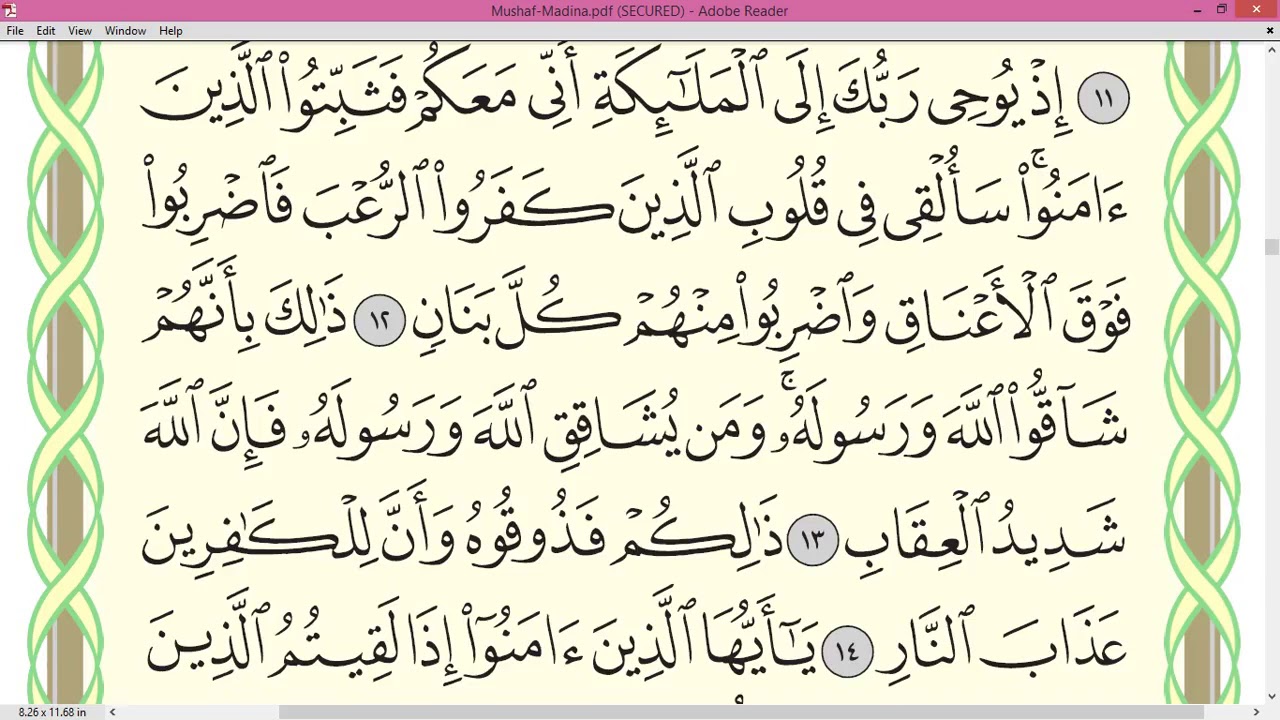 Mushaf-Madina.pdf (SECURED) - Adobe Reader
File Edit View Window Help
١١ إِذْ يُوحِى رَبُّكَ إِلَى ٱلْمَلَـٰٓئِكَةِ أَنِّى مَعَكُمْ فَثَبِّتُوا۟ ٱلَّذِينَ
ءَامَنُوا۟ ۚ سَأُلْقِى فِى قُلُوبِ ٱلَّذِينَ كَفَرُوا۟ ٱلرُّعْبَ فَٱضْرِبُوا۟
فَوْقَ ٱلْأَعْنَاقِ وَٱضْرِبُوا۟ مِنْهُمْ كُلَّ بَنَانٍ ١٢ ذَٰلِكَ بِأَنَّهُمْ
شَآقُّوا۟ ٱللَّهَ وَرَسُولَهُۥ ۚ وَمَن يُشَاقِقِ ٱللَّهَ وَرَسُولَهُۥ فَإِنَّ ٱللَّهَ
شَدِيدُ ٱلْعِقَابِ ١٣ ذَٰلِكُمْ فَذُوقُوهُ وَأَنَّ لِلْكَـٰفِرِينَ
عَذَابَ ٱلنَّارِ ١٤ يَـٰٓأَيُّهَا ٱلَّذِينَ ءَامَنُوٓا۟ إِذَا لَقِيتُمُ ٱلَّذِينَ
8.26 x 11.68 in